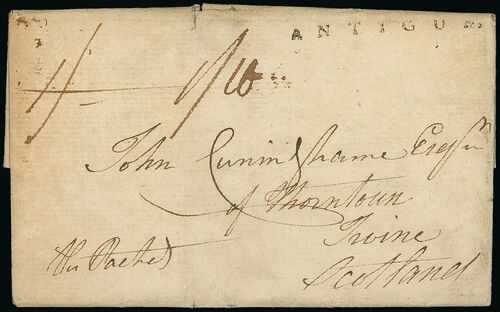 ANTIGUA
1/-
1/10
John Cuninghame Esqr
of Thorntoun
Irvine
Scotland
Packet